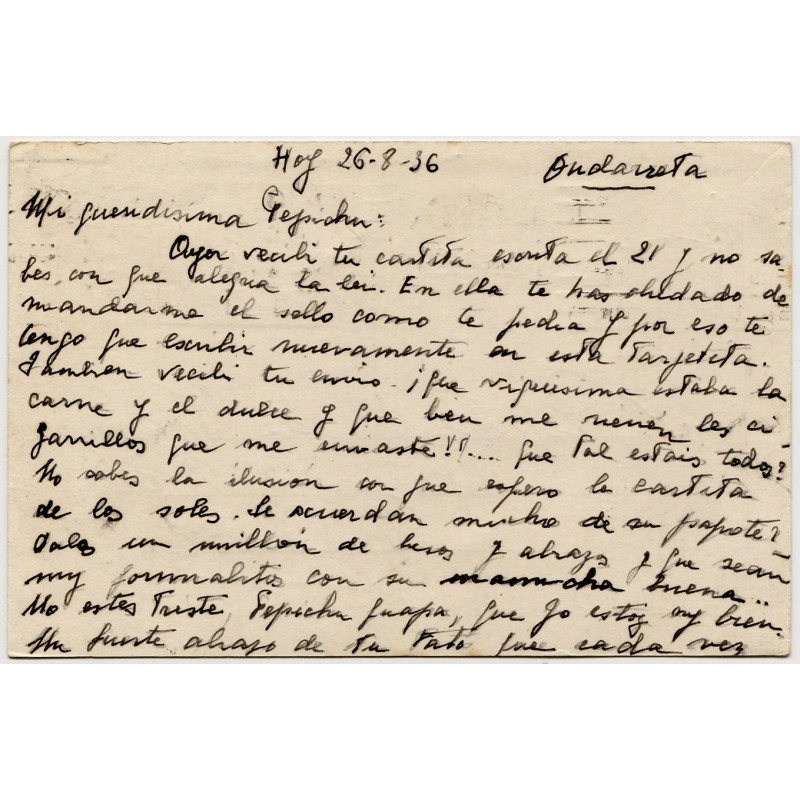 Hoy 26-8-36 Ondarreta
Mi queridisima Pepichu:
Ayer recibi tu cartita escrita el 21 y no sa-
bes con que alegria la lei. En ella te has olvidado de
mandarme el sello como te pedia y por eso te
tengo que escribir nuevamente en esta tarjetita.
Tambien recibi tu envio. ¡que riquisima estaba la
carne y el dulce y que bien me vienen los ci-
garrillos que me enviaste!!.... que tal estais todos?
No sabes la ilusión con que espero la cartita
de los soles. Se acuerdan mucho de su papote?
Dales un millón de besos y abrazos y que sean
muy formalitos con su mamucha buena..
No estes triste, Pepichu guapa, que yo estoy muy bien.
Un fuerte abrazo de tu Tato que cada vez